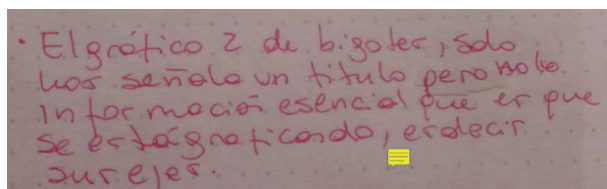 · El gráfico 2 de bigotes, solo
nos señala un titulo pero no la
información esencial que es que
se está graficando, es decir
sus ejes.